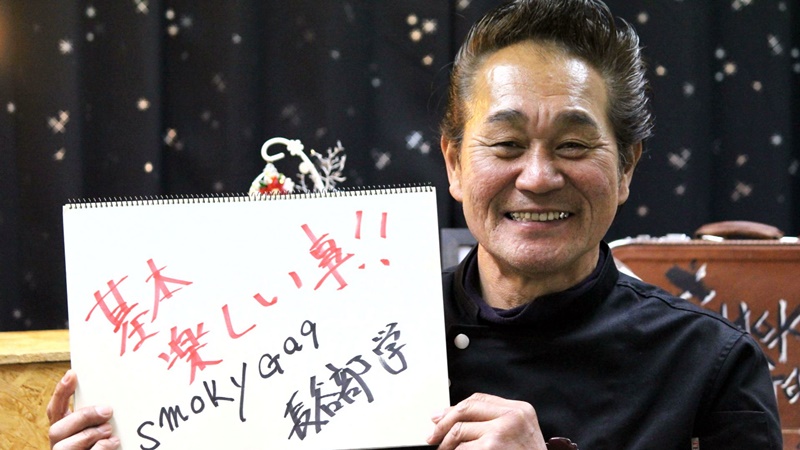 基本
楽しい事!!
SMOKY Gag
長谷部 学